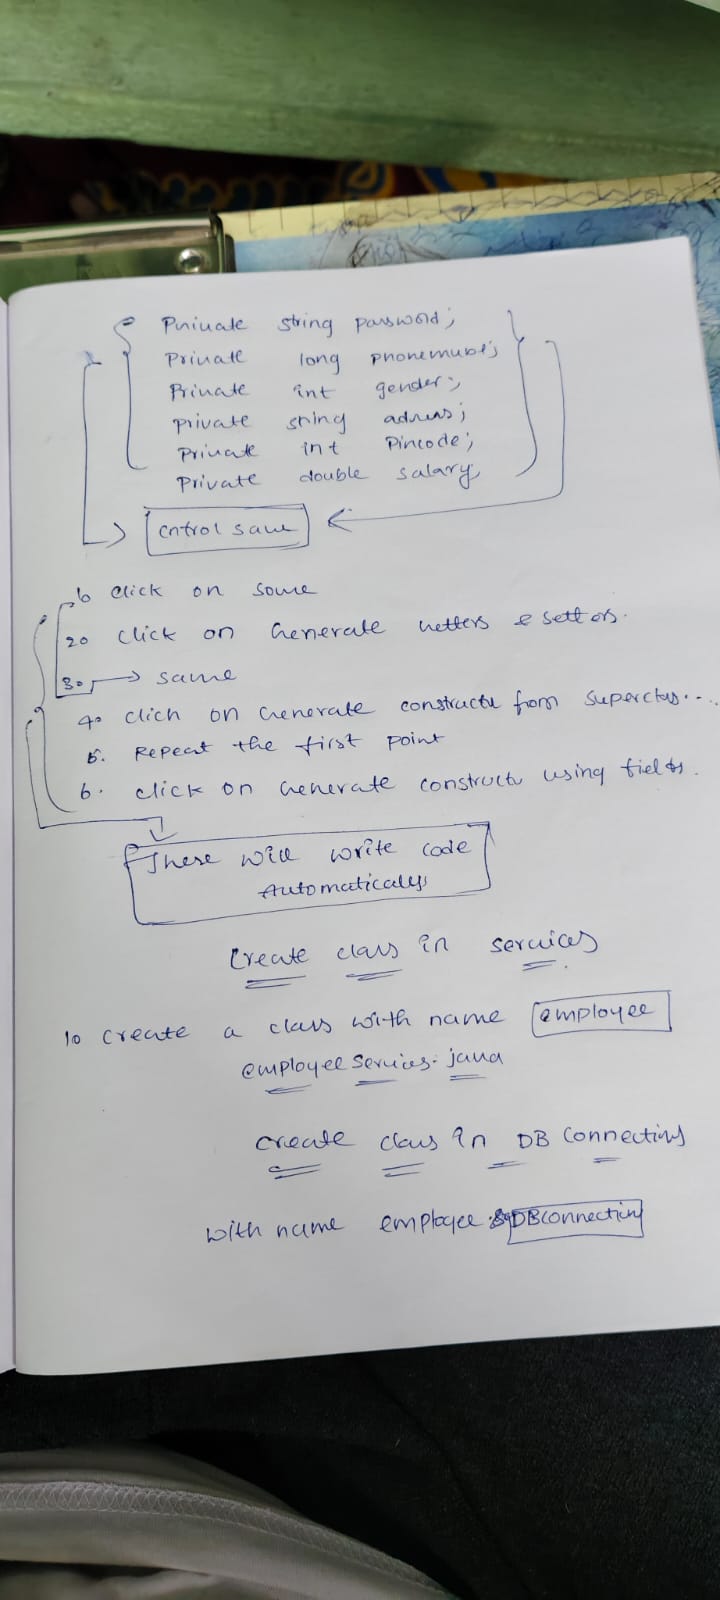 Private string password;
Private long phonenumbr;
Private int gender;
private string adress;
Private int Pincode;
Private double salary;
Cntrol save
1. click on source
2. click on Generate hetters & settors.
3. → same
4. click on Generate constructu from Superclas...
5. Repeat the first point
6. click on Generate constructu using fields.
These will write code
Automatically
Create class in services
1. create a class with name employee
employee services. java
create class in DB Connecting
with name employee DBconnecting